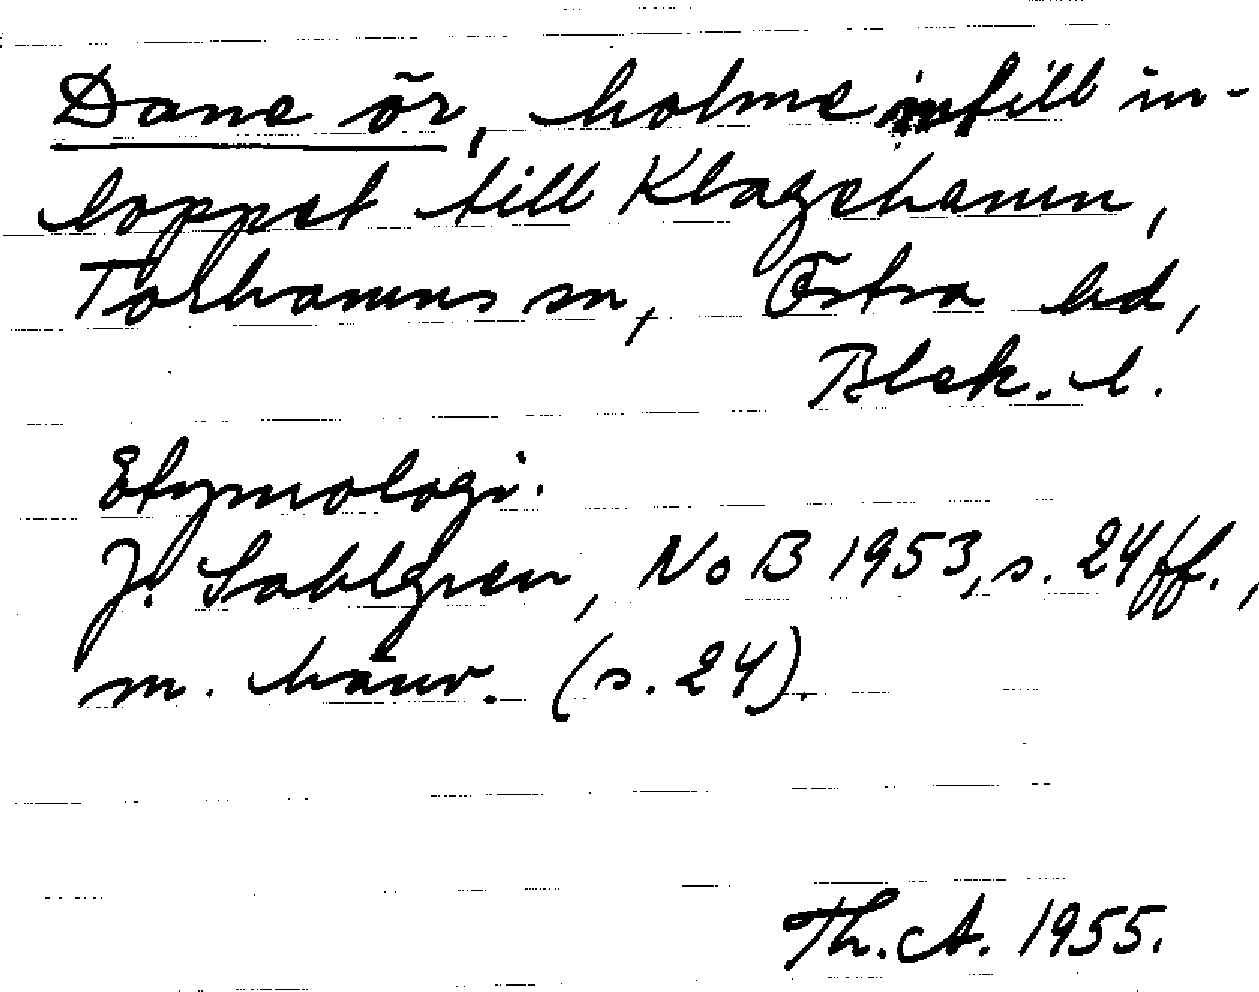 Dane ör, holme intill in-
loppet till Klagehamn,
Torhamns sn, Östra hd,
Blek. l.
Etymologi.
J. Sahlgren, NoB 1953, s. 24 ff.,
m. hänv. (s. 24).
Th. A. 1955.